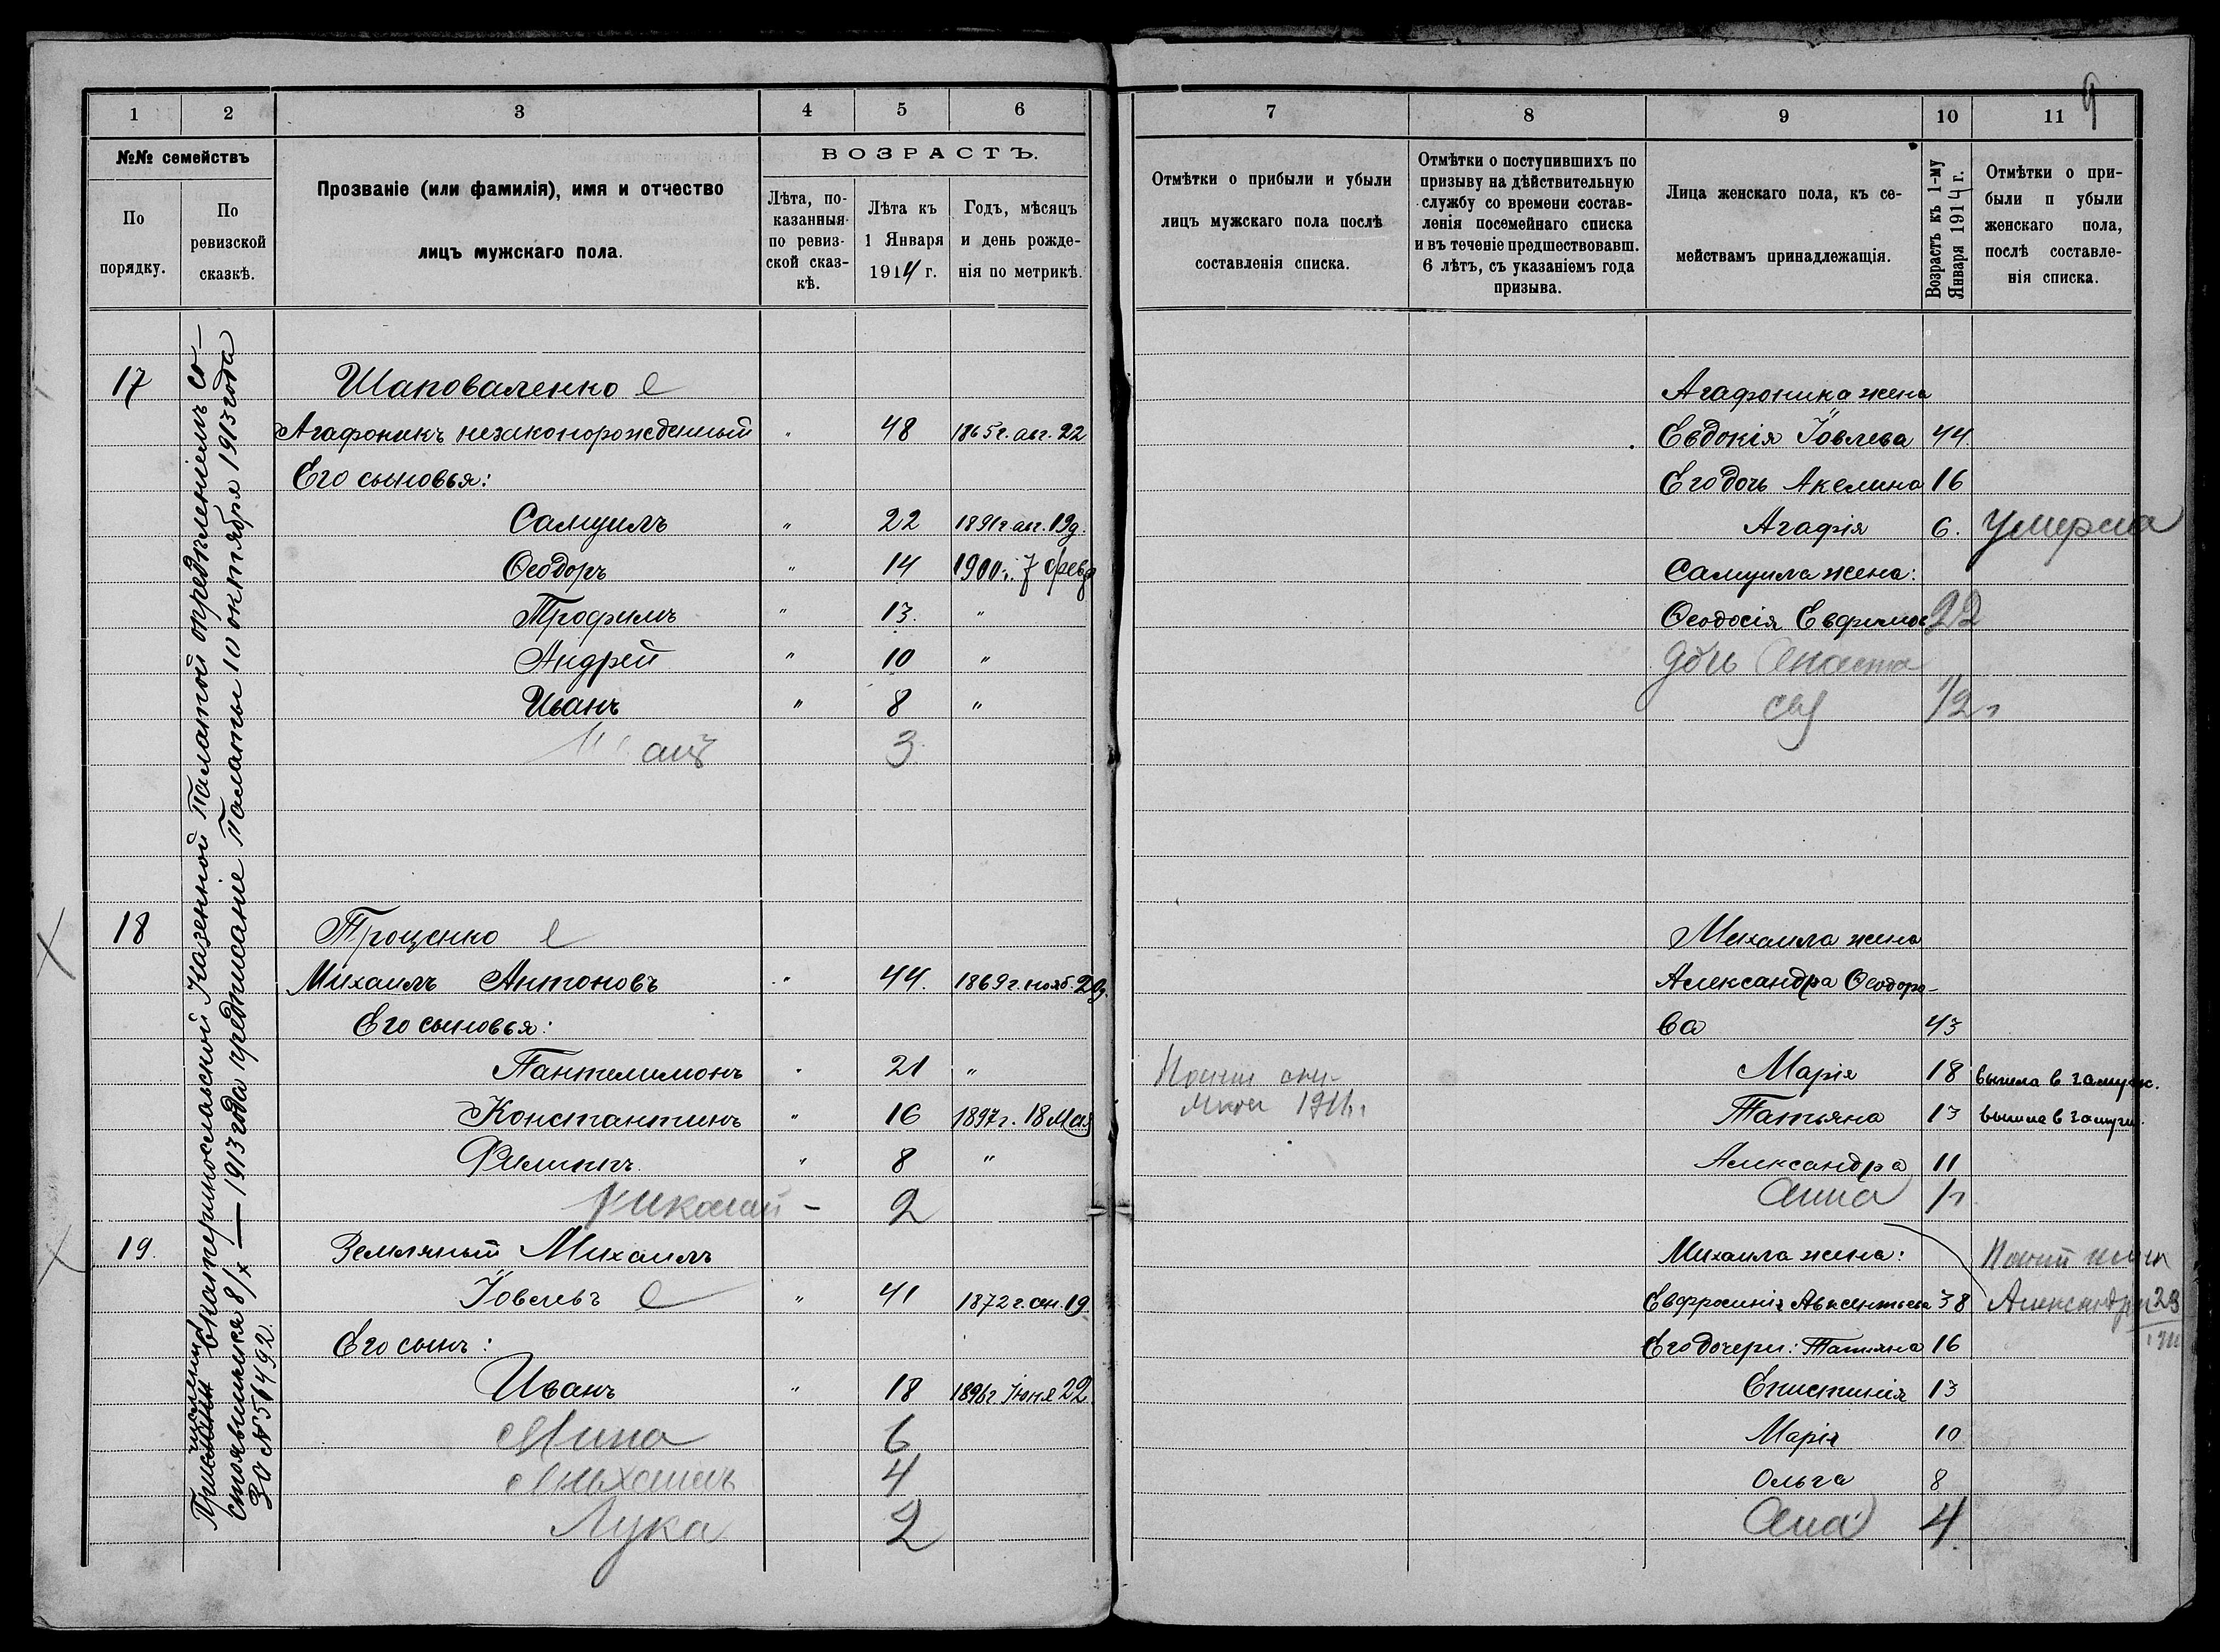 9
1 2 3 4 5 6
№№ семействъ
По порядку.
По ревизской сказкѣ.
Прозваніе (или фамилія), имя и отчество
лицъ мужскаго пола.
ВОЗРАСТЪ.
Лѣта, по-
казанныя
по ревиз-
ской сказ-
кѣ.
Лѣта къ
1 Января
1914 г.
Годъ, мѣсяцъ
и день рожде-
нія по метрикѣ.
Екатеринославской Казенной Палатой опредѣленіемъ со-
стоявшимся 8/X — 1913 года предписаніе Палаты 10 октября 1913 года
За № 56492.
17 Шаповаленко
Агафоникъ незаконорожденный " 48 1865 г. авг. 22
Его сыновья:
Самуилъ " 22 1891 г. авг. 19 д.
Ѳеодоръ " 14 1900 г. 7 февр
Трофимъ " 13. "
Андрей " 10 "
Иванъ " 8 "
3
18 Троценко
Михаилъ Антоновъ " 44. 1869 г. нояб.
Его сыновья:
Пантелимонъ " 21 "
Константинъ " 16 1897 г. 18 Мая
Филиппъ " 8 "
Николай - 2
19. Земляный Михаилъ
Іовлевъ " 41 1872 г. 19
Его сынъ:
Иванъ " 18 1896 г. Іюня 22
Мина 6
Михаилъ 4
Лука 2
7 8 9 10 11
Отмѣтки о прибыли и убыли
лицъ мужскаго пола послѣ
составленія списка.
Отмѣтки о поступившихъ по
призыву на дѣйствительную
службу со времени состав-
ленія посемейнаго списка
и въ теченіе предшествовавш.
6 лѣтъ, съ указаніемъ года
призыва.
Лица женскаго пола, къ се-
мействамъ принадлежащія.
Возрастъ къ 1-му
Января 1914 г.
Отмѣтки о при-
были п убыли
женскаго пола,
послѣ составле-
нія списка.
Агафоника жена
Евдокія Іовлева 44
Его дочь Акелина 16
Агафія 6. умерла
Самуила жена:
Ѳеодосія Евфимов 22
дочь Анаста
1/2 г
Михаила жена
Александра Ѳеодоро-
ва 43
Марія 18 вышла в замуж.
Татьяна 13 вышла в замуж.
Александра 11
Анна
Михаила жена:
Евфросинія Авксентьева 38
Его дочери: Татьяна 16
Епистинія 13
Марія 10
Ольга 8
Ана 4